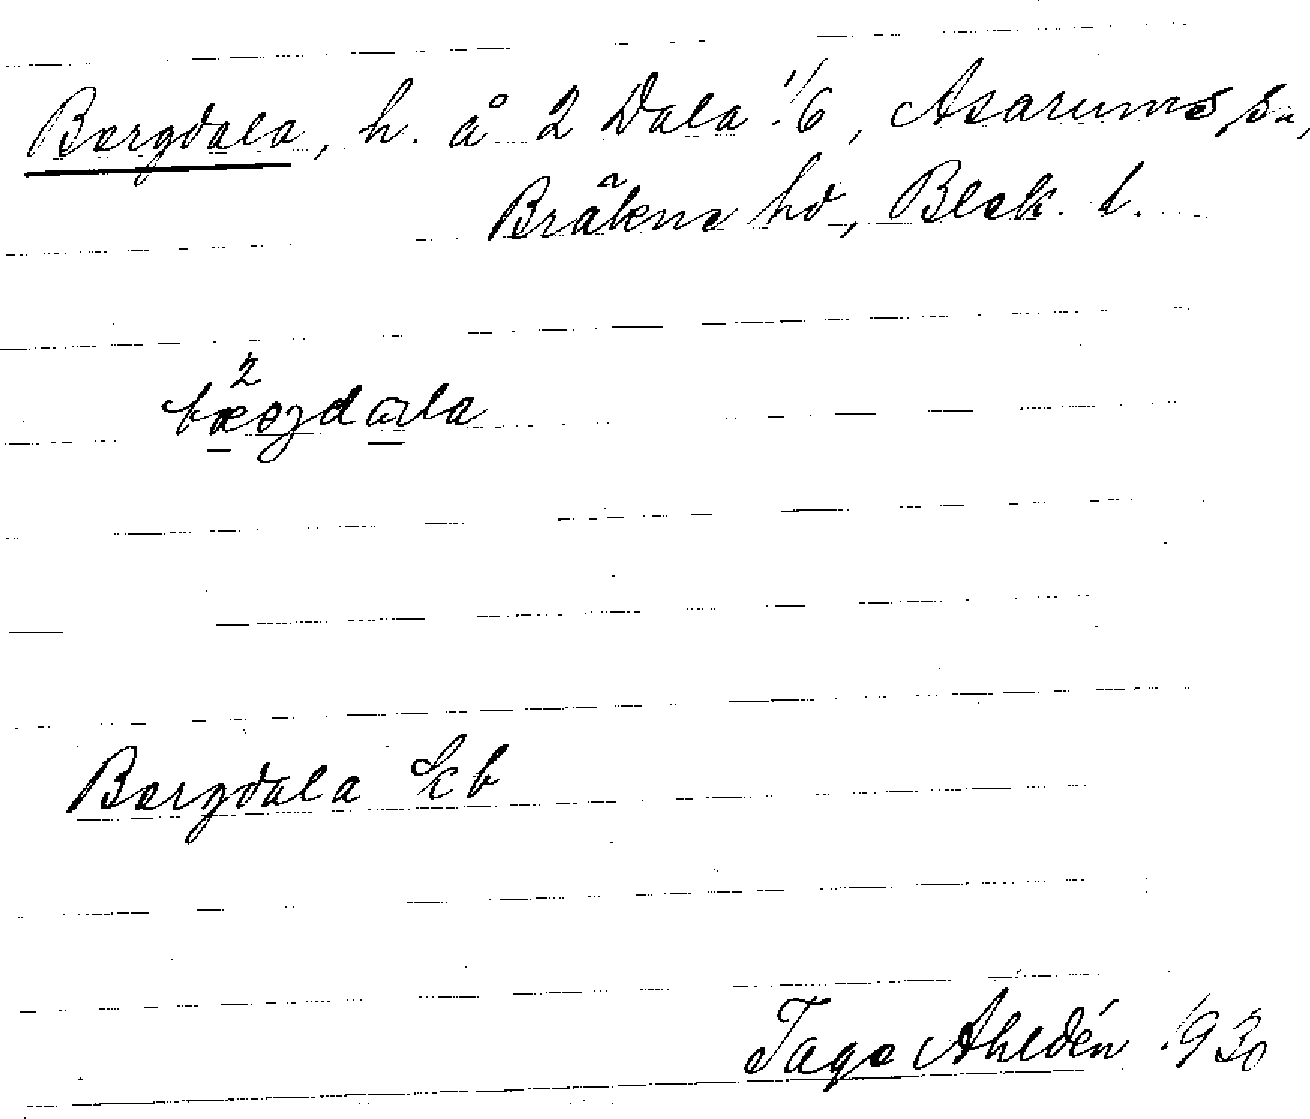 Bergdala, h. å 2 Dala 1/6, Asarums sn,
Bräkne hd, Blek. l.
Bergdala Ekb
Tage Ahldén 1930